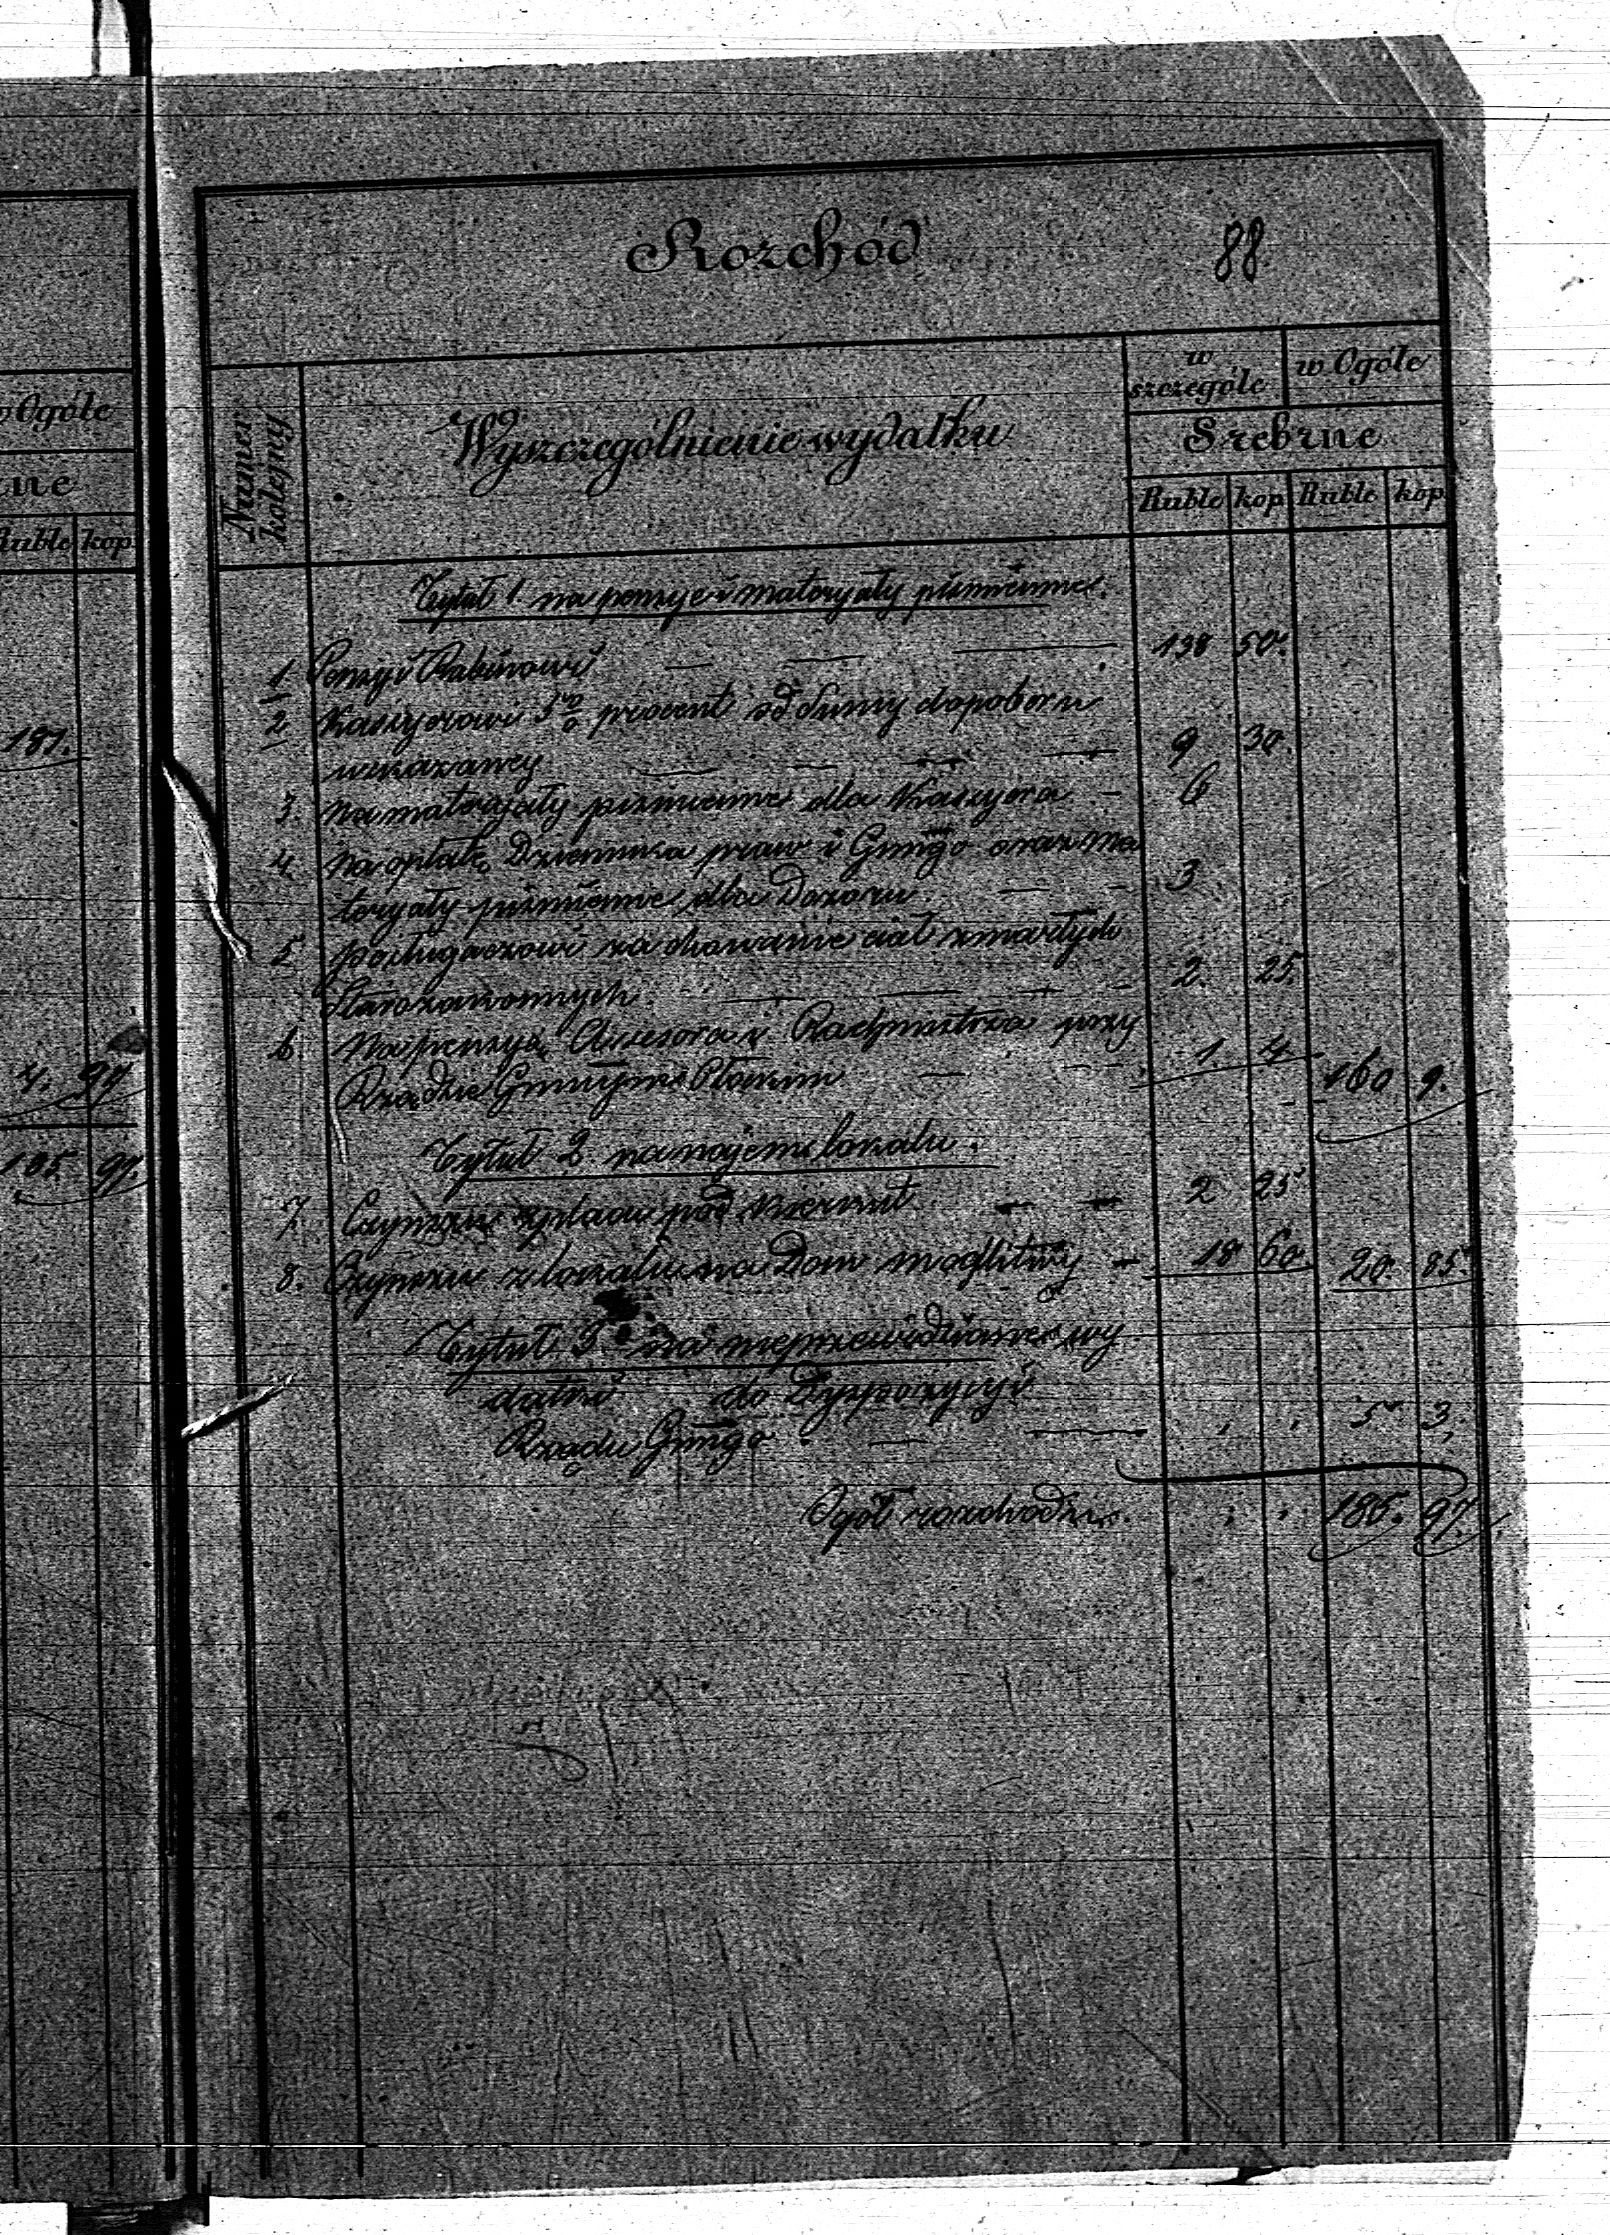 w Ogóle
ne
Ruble kop
181.
4. 97
185 97
Rozchód 88.
Numer kolejny
Wyszczególnienie wydatku
w szczególe
w Ogóle
Srebrne
Ruble kop Ruble kop
Tytuł 1 na pensye i materyały piśmienne.
1 Pensyi Rabinowi 138 50.
2 Kassyerowi 5 % procent od Summy do poboru
wskazanej 9 30.
3. na materyały piśmienne dla Kassyera 6
4 na opłatę Dziennika praw i Gmigo oraz ma
teryały piśmienne dla Dozoru 3
5 posługaczowi za chowanie ciał zmarłych
Starozakonnych 2. 25.
6. Na pensyą Assesora i Rachmistrza przy
Rządzie Gmnym 1. 4 160 9.
Tytuł 2 na najem lokalu.
7. Czynszu z placu pod kierkut 2 25
8. Czynszu z lokalu na Dom modlitwy 18 60 20. 85.
Tytuł 3 na nieprzewidziane wy
datki do Dyspozycyi
Rządu Gmigo 5 3.
Ogół rozchodu. 185. 97.